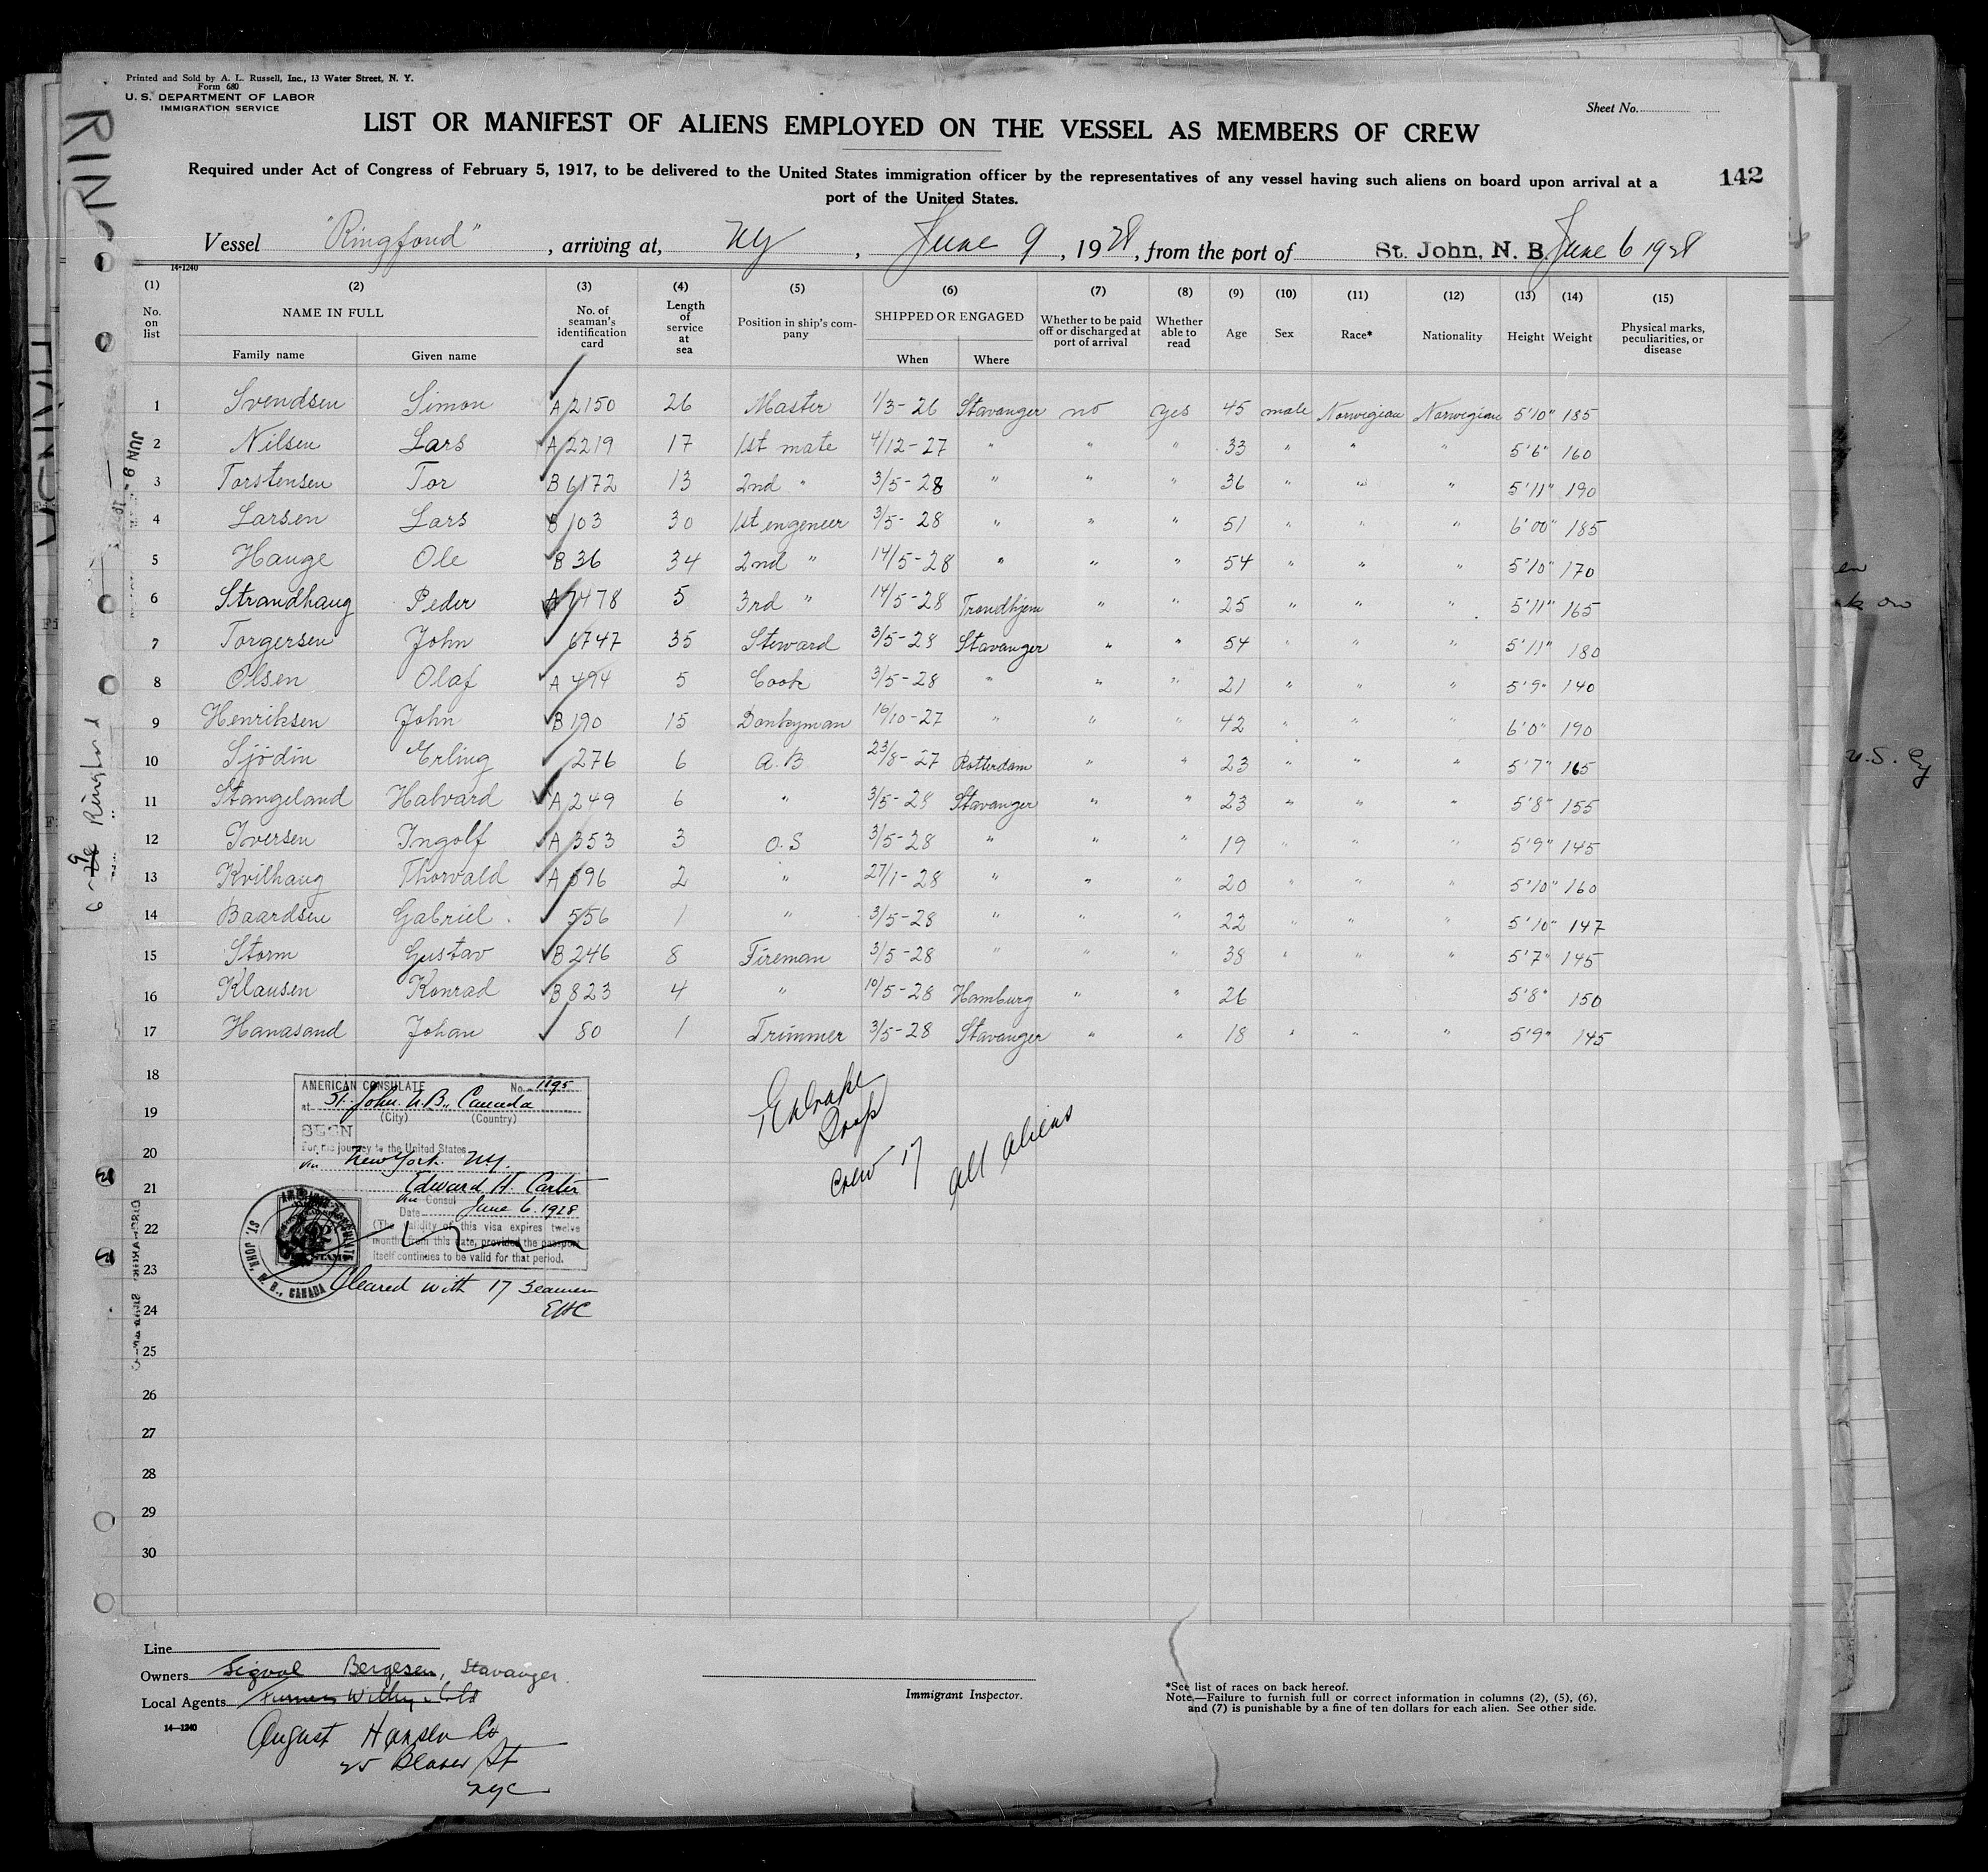 Printed and Sold by A. L. Russell, Inc., 13 Water Street, N. Y.
Form 680
U. S. DEPARTMENT OF LABOR
IMMIGRATION SERVICE
Sheet No.
LIST OR MANIFEST OF ALIENS EMPLOYED ON THE VESSEL AS MEMBERS OF CREW
Required under Act of Congress of February 5, 1917, to be delivered to the United States immigration officer by the representatives of any vessel having such aliens on board upon arrival at a
port of the United States.
142
Vessel "Ringfond", arriving at, NY, June 9, 1928, from the port of St. John, N. B. June 6 1928
14-1240
(1) (2) (3) (4) (5) (6) (7) (8) (9) (10) (11) (12) (13) (14) (15)
No. on list NAME IN FULL Family name Given name No. of seaman's identification card Length of service at sea Position in ship's company SHIPPED OR ENGAGED When Where Whether to be paid off or discharged at port of arrival Whether able to read Age Sex Race* Nationality Height Weight Physical marks, peculiarities, or disease
1 Svendsen Simon A 2150 26 Master 1/3-26 Stavanger no yes 45 male Norwegian Norwegian 5'10" 185
2 Nilsen Lars A 2219 17 1st mate 4/12-27 " " " 33 " " " 5'6" 160
3 Torstensen Tor B 6172 13 2nd " 3/5-28 " " " 36 " " " 5'11" 190
4 Larsen Lars B 103 30 1st engeneer 3/5-28 " " " 51 " " " 6'00" 185
5 Hauge Ole B 36 34 2nd " 14/5-28 " " " 54 " " " 5'10" 170
6 Strandhaug Peder A 7478 5 3rd " 14/5-28 Trondhjem " " 25 " " " 5'11" 165
7 Torgersen John 6747 35 Steward 3/5-28 Stavanger " " 54 " " " 5'11" 180
8 Olsen Olaf A 494 5 Cook 3/5-28 " " " 21 " " " 5'9" 140
9 Henriksen John B 190 15 Donkyman 19/10-27 " " " 42 " " " 6'0" 190
10 Sjödin Erling 276 6 A.B 23/8-27 Rotterdam " " 23 " " " 5'7" 165
11 Stangeland Halvard A 249 6 " 3/5-28 Stavanger " " 23 " " " 5'8" 155
12 Iversen Ingolf A 353 3 O.S 3/5-28 " " " 19 " " " 5'9" 145
13 Kvilhaug Thorvald A 596 2 " 27/1-28 " " " 20 " " " 5'10" 160
14 Baardsen Gabriel 556 1 " 3/5-28 " " " 22 " " " 5'10" 147
15 Storm Gustav B 246 8 Fireman 3/5-28 " " " 38 " " " 5'7" 145
16 Klausen Konrad B 823 4 " 10/5-28 Hamburg " " 26 5'8" 150
17 Hanasand Johan 80 1 Trimmer 3/5-28 Stavanger " " 18 " " " 5'9" 145
18
19
20
21
22
23
24
25
26
27
28
29
30
AMERICAN CONSULATE No. 1195
at St. John. N.B., Canada
(City) (Country)
SEEN
For the journey to the United States
via New York. N.Y.
Edward H. Carter
Vice Consul
Date June 6. 1928
(The validity of this visa expires twelve
months from this date, provided the passport
itself continues to be valid for that period.
ST. JOHN, N. B., CANADA
Cleared with 17 Seamen
EHC
Crew 17 All Aliens
Line
Owners Sigval Bergesen, Stavanger
Local Agents
14-1240
August Hansen Co
25 Beaver St
NYC
Immigrant Inspector.
*See list of races on back hereof.
Note.—Failure to furnish full or correct information in columns (2), (5), (6),
and (7) is punishable by a fine of ten dollars for each alien. See other side.